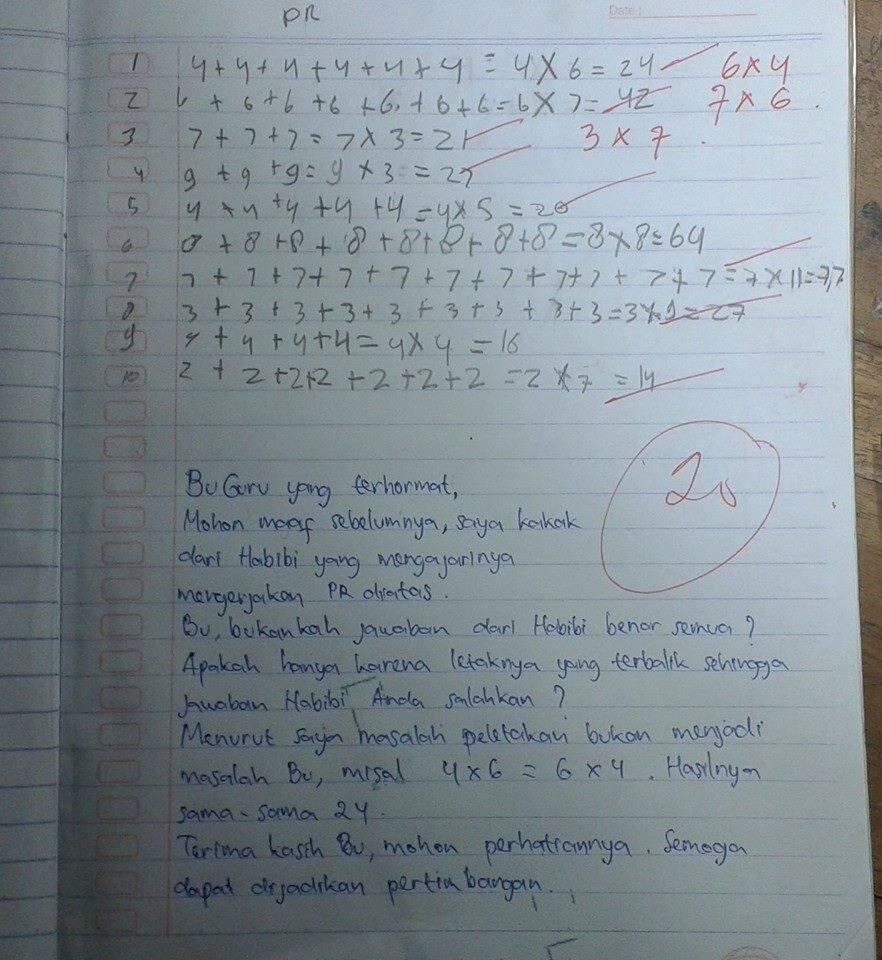 PR
Date :
1 4+4+4+4+4+4 = 4×6=24 6×4
2 6+6+6+6+6+6+6=6×7=42 7×6.
3 7+7+7=7×3=21 3×7.
4 9+9+9=9×3=27
5 4+4+4+4+4=4×5=20
6 8+8+8+8+8+8+8+8=8×8=64
7 7+7+7+7+7+7+7+7+7+7+7=7×11=77
8 3+3+3+3+3+3+3+3+3=3×9=27
9 4+4+4+4=4×4=16
10 2+2+2+2+2+2+2=2×7=14
20
Bu Guru yang terhormat,
Mohon maaf sebelumnya, saya kakak
dari Habibi yang mengajarinya
mengerjakan PR diatas.
Bu, bukankah jawaban dari Habibi benar semua?
Apakah hanya karena letaknya yang terbalik sehingga
jawaban Habibi Anda salahkan?
Menurut saya masalah peletakan bukan menjadi
masalah Bu, misal 4×6 = 6×4. Hasilnya
sama-sama 24.
Terima kasih Bu, mohon perhatiannya. Semoga
dapat dijadikan pertimbangan.